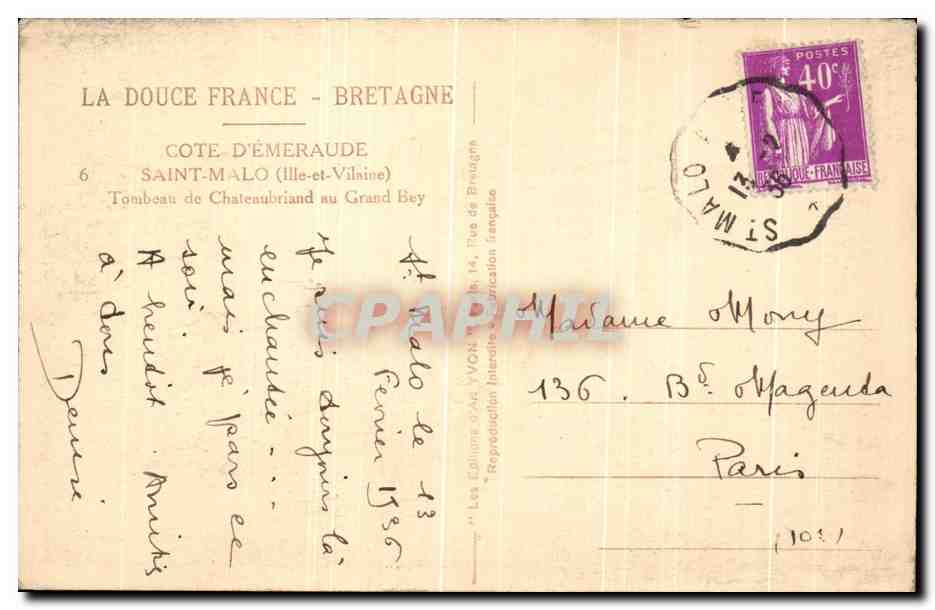 LA DOUCE FRANCE - BRETAGNE
COTE D'ÉMERAUDE
6 SAINT-MALO (Ille-et-Vilaine)
Tombeau de Chateaubriand au Grand Bey
St Malo le 13
Fevrier 1936
Je suis toujours là
enchantée...
mais je pars ce
soir.
A bientôt. Amitiés
à tous
Denise
"Les Editions d'Art YVON" 14, Rue de Bretagne
Reproduction Interdite Fabrication française
POSTES
40c
RÉPUBLIQUE-FRANÇAISE
ST MALO
13 -2
36
Madame Mony
136. Bd. Magenta
Paris
(10e)
CPAPHIL